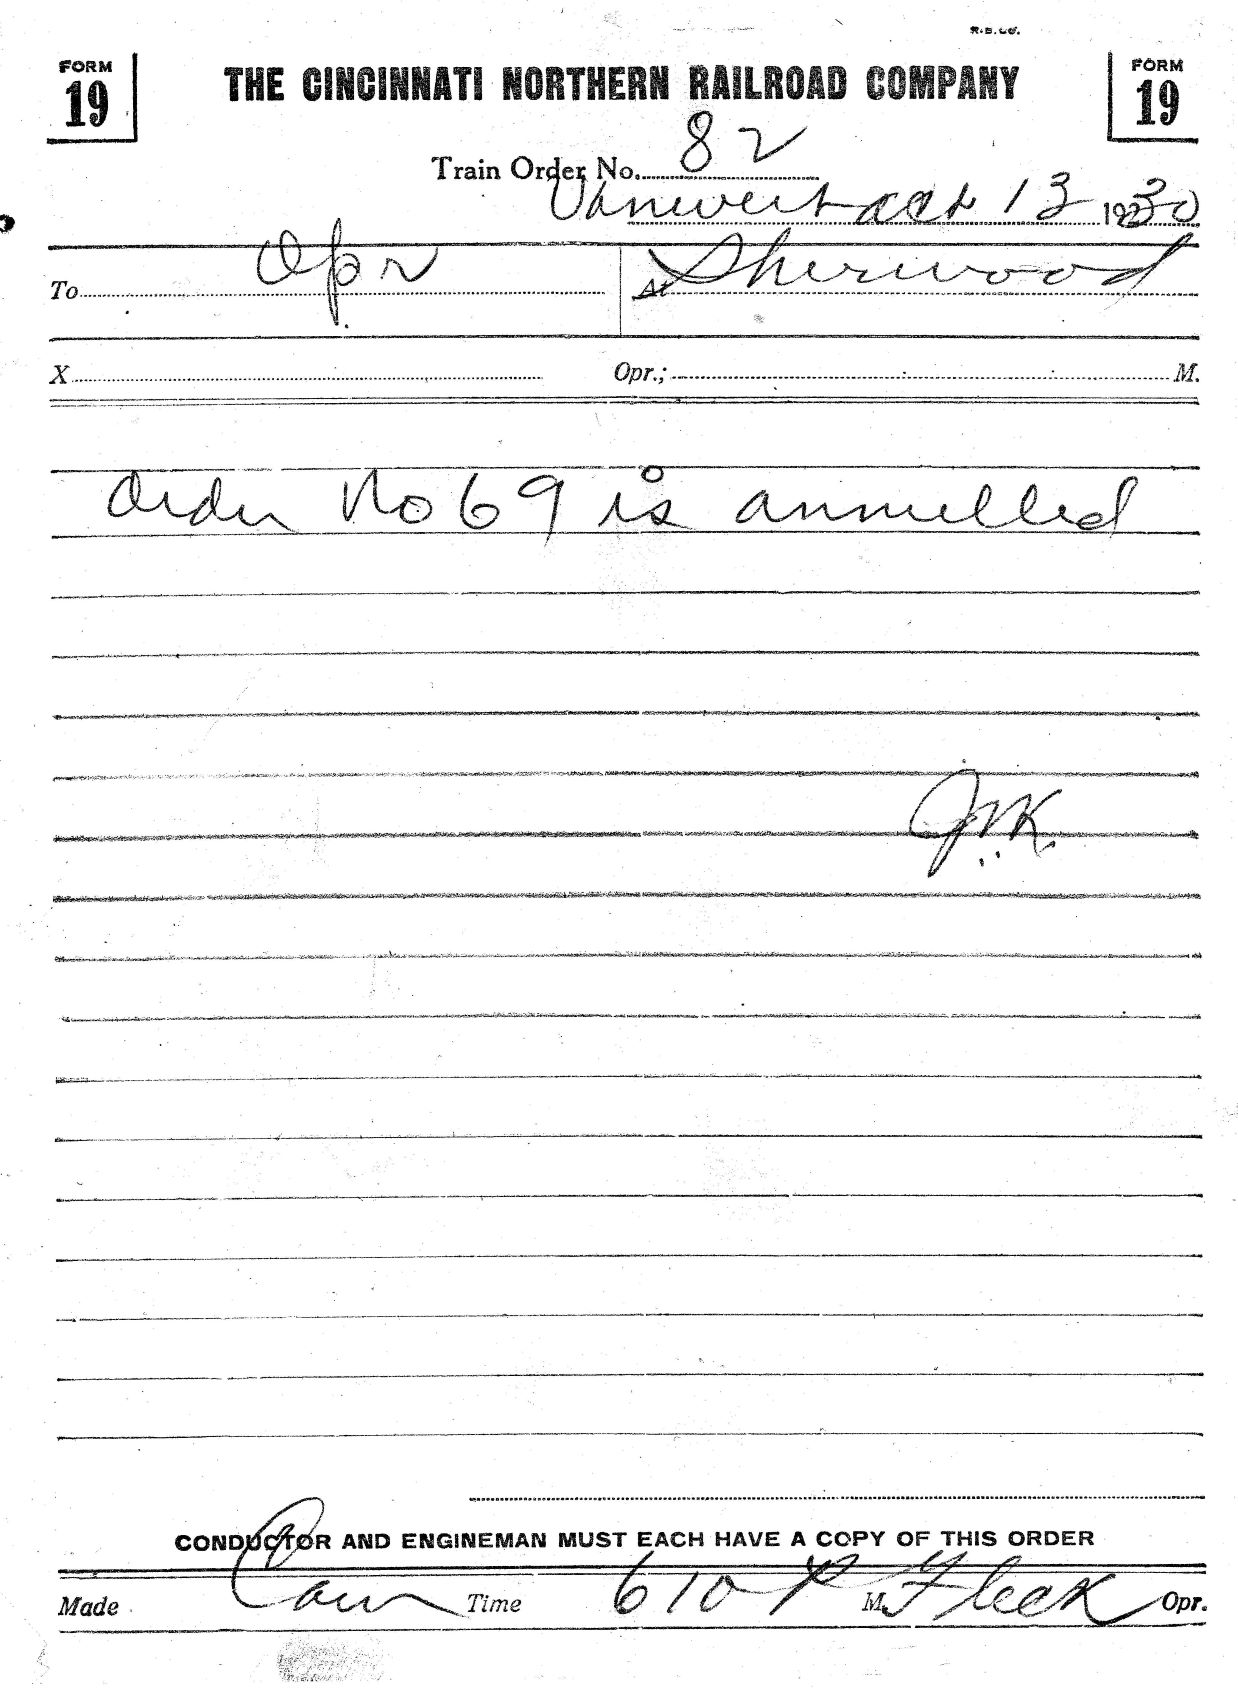 R.S.Co.
FORM 19 THE CINCINNATI NORTHERN RAILROAD COMPANY FORM 19
Train Order No. 82
Vanwert Oct 13 1930
To Opr At Sherwood
X Opr.; M.
Order No 69 is annulled
JVK
CONDUCTOR AND ENGINEMAN MUST EACH HAVE A COPY OF THIS ORDER
Made Com Time 610 P M. Fleck Opr.